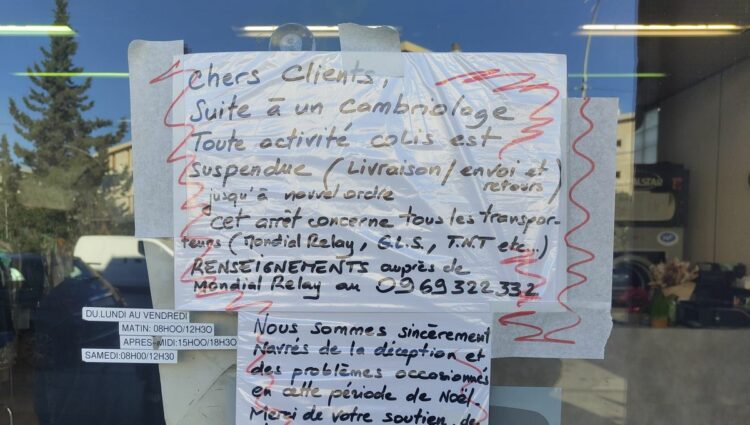 Chers Clients,
Suite à un Cambriolage
Toute activité colis est
suspendue (Livraison/envoi et retours)
jusqu'à nouvel ordre
Cet arrêt concerne tous les transpor-
teurs (Mondial Relay, G.L.S., T.N.T etc...)
RENSEIGNEMENTS auprès de
Mondial Relay au 0969322332
Nous sommes sincèrement
Navrés de la déception et
des problèmes occasionnés
en cette période de Noël.
Merci de votre soutien, de
DU LUNDI AU VENDREDI
MATIN: 08H00/12H30
APRES-MIDI:15H00/18H30
SAMEDI:08H00/12H30